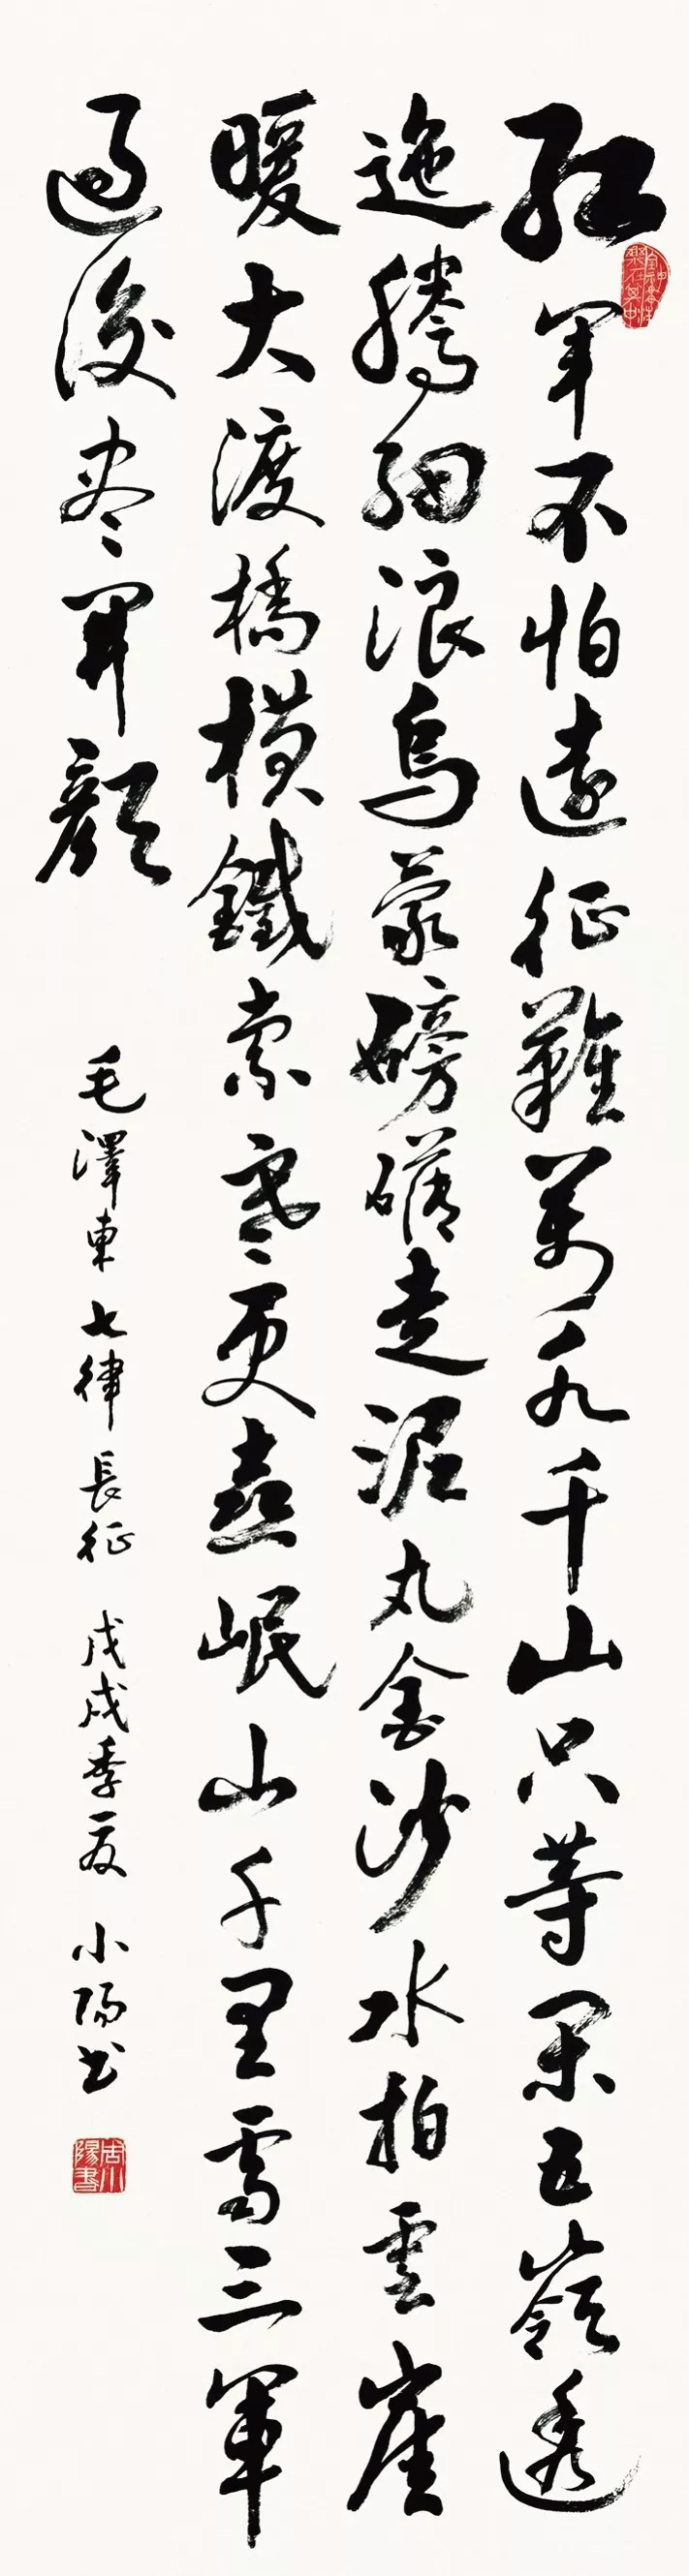 紅軍不怕遠征難萬水千山只等閑五嶺逶
迤騰細浪烏蒙磅礴走泥丸金沙水拍雲崖
暖大渡橋橫鐵索寒更喜岷山千里雪三軍
過後盡開顏 毛澤東七律長征 戊戌季夏 小陽書
周小陽書